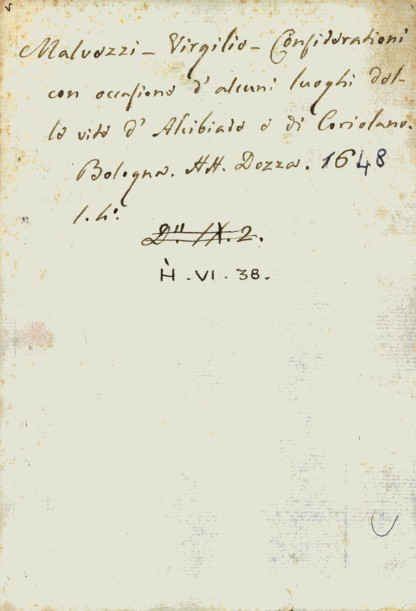 Malvezzi - Virgilio - Considerationi
con occasione d'alcuni luoghi del-
le vite d'Alcibiade e di Coriolano.
Bologna. HH. Dozza. 1648
1.4º.
Dⁿ. IX. 2.
H. VI. 38.